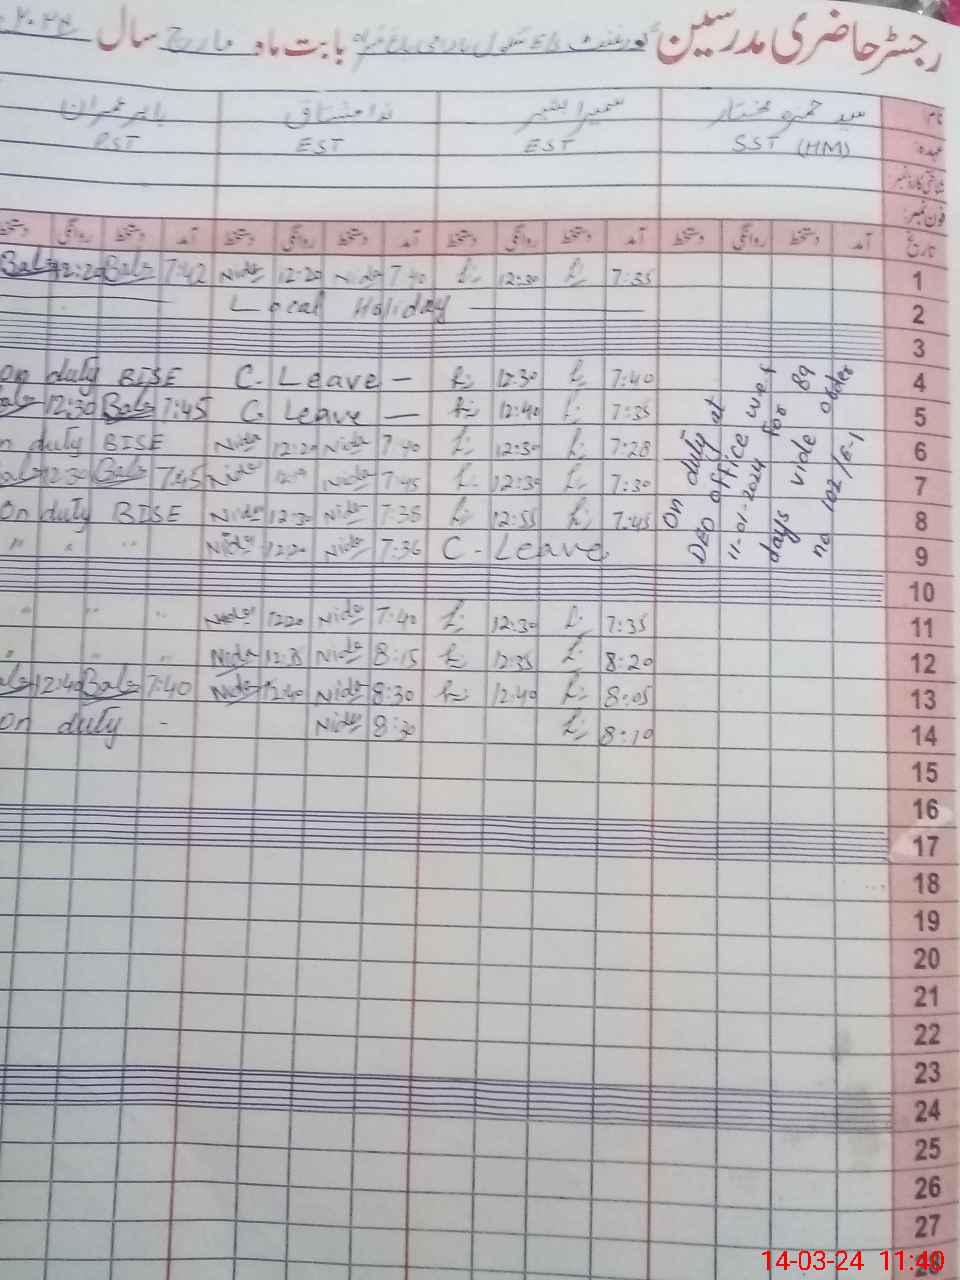 رجسٹر حاضری مدرسین گورنمنٹ بابت ماہ مارچ سال ۲۰۲۴
نام: سید حمزہ مختار سمیرا بشیر ندا مشتاق بابر عمران
عہدہ: SST (HM) EST EST PST
شناختی کارڈ نمبر
فون نمبر:
تاریخ آمد دستخط روانگی دستخط آمد دستخط روانگی دستخط آمد دستخط روانگی دستخط آمد دستخط روانگی دستخط
1 7:35 12:30 7:40 Nida 12:20 Nida 7:42 12:20
2 Local Holiday
3
4 7:40 12:30 C. Leave — On duty BISE
5 7:35 12:40 C. Leave — 7:45 12:30
6 7:28 12:30 7:40 Nida 12:20 Nida On duty BISE
7 7:30 12:30 7:45 Nida Nida 7:45 12:30
8 7:45 12:55 7:38 Nida 12:30 Nida On duty BISE
9 C - Leave 7:36 Nida 12:20 Nida " " "
On duty at
DEO office w.e.f
11-01-2024 for 89
days vide order
no 102/E-1
10
11 7:35 12:30 7:40 Nida 12:20 Nida " " "
12 8:20 12:35 8:15 Nida 12:35 Nida " " "
13 8:05 12:40 8:30 Nida 12:40 Nida 7:40 12:40
14 8:10 8:30 Nida On duty -
15
16
17
18
19
20
21
22
23
24
25
26
27
28
14-03-24 11:40